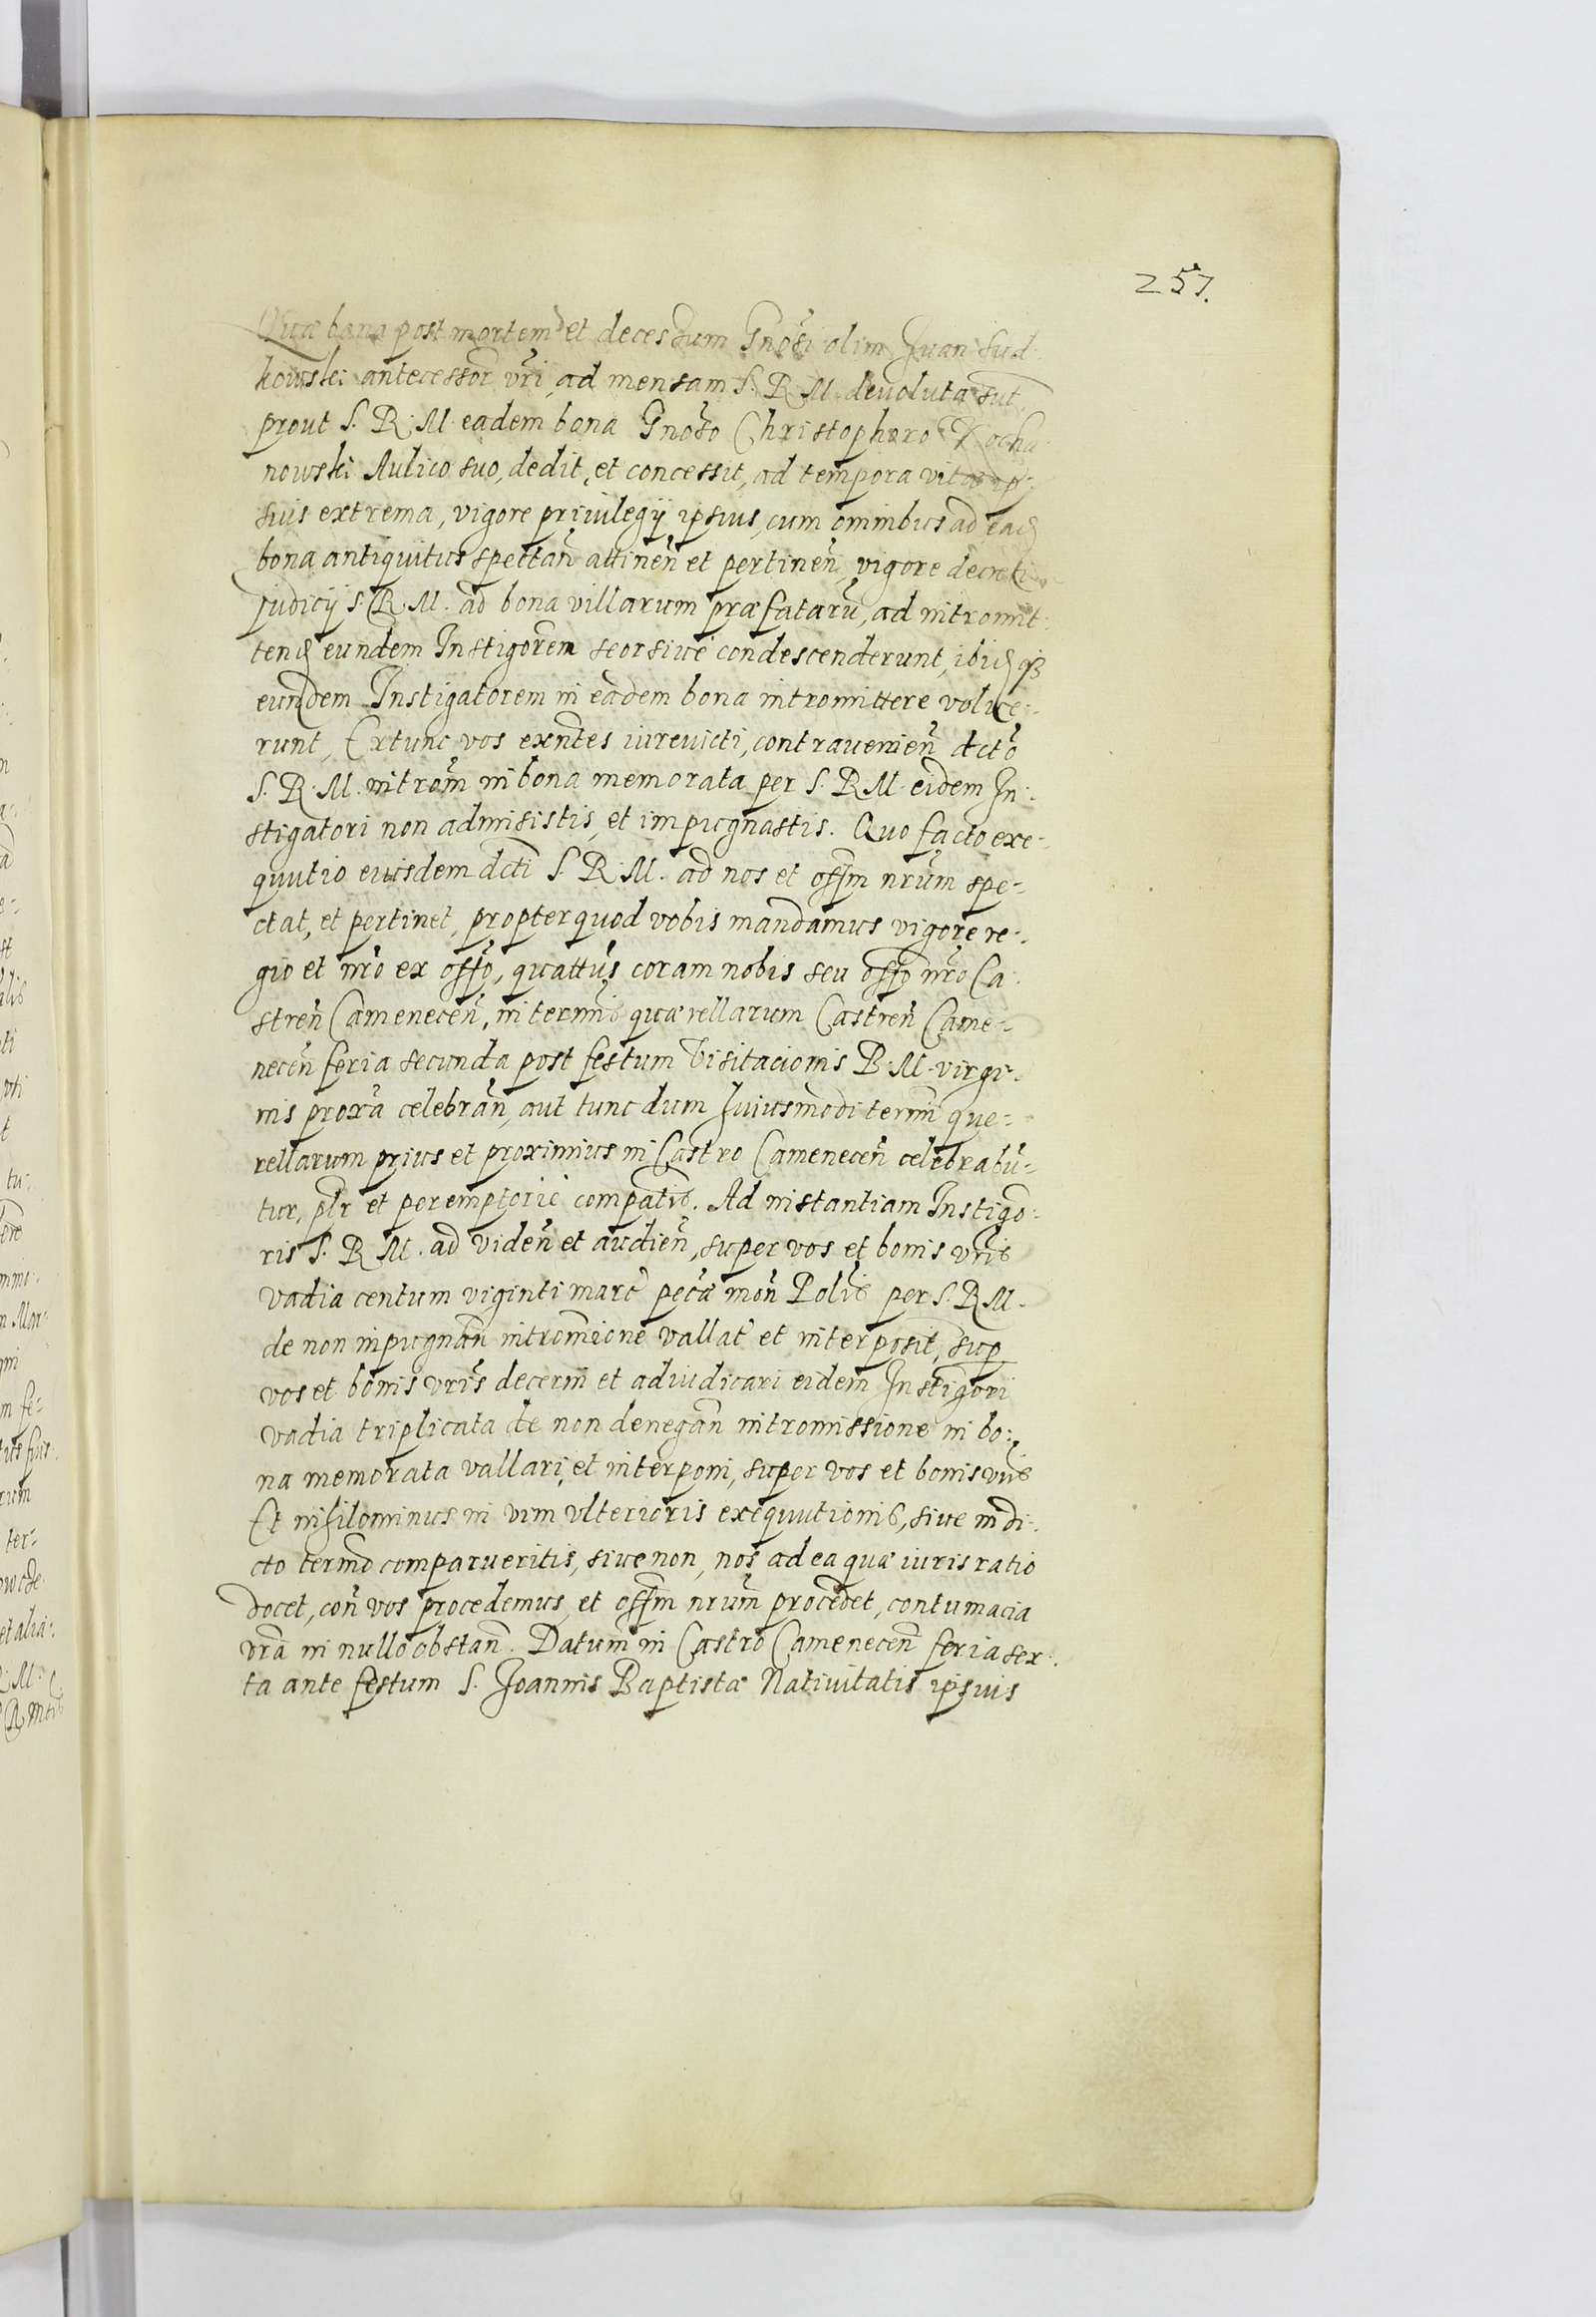 257.
Quæ bona post mortem et decessum Gnōsi olim Iwan Sud-
kowski antecessor̃ vr̃i, ad mensam S. R. M. deuoluta sūt,
prout S. R. M. eadem bona Gnōso Christophoro Kocha-
nowski Aulico suo, dedit, et concessit, ad tempora vitæ ip-
sius extrema, vigore priuilegij ipsius, cum omnibus ad eaḍ
bona antiquitus spectañ attineñ et pertineñ, vigore decreti
judicij S. R. M. ad bona villarum præfatarū, ad intromit-
tenḍ eundem Instigorem seorsiue condescenderunt, ibiḍ qȝ
eundem Instigatorem in eadem bona intromittere volue-
runt, Extunc vos exñtes iurevicti, contravenieñ dctō
S. R. M. introm̃ in bona memorata per S. R. M. eidem In-
stigatori non admisistis, et impugnastis. Quo facto exe-
quutio eiusdem dcti S. R. M. ad nos et off̃m nr̃um spe-
ctat, et pertinet, propterquod vobis mandamus vigore re-
gio et nr̃o ex off̃o, quattus coram nobis seu off̃o nr̃o Ca-
streñ Cameneceñ, in termis̃ quærellarum Castreñ Came-
neceñ feria secunda post festum Visitacionis B. M. virgi-
nis proxā celebrañ, aut tunc dum huiusmodi termī que-
rellarum prius et proximius in Castro Cameneceñ celebrabū-
tur, pl̃r et peremptorie compātis. Ad instantiam Instigō-
ris S. R. M. ad videñ et audieñ, super vos et bonis vr̃is
vadia centum viginti marc̃ pecæ̃ moñ Polis̃ per S. R. M.
de non inpugnañ intromĩone vallat̃ et interposit̃, sup
vos et bonis vr̃is decerni et adiudicari eidem Instigori
vadia triplicata de non denegañ intromissione in bo-
na memorata vallari, et interponi, super vos et bonis vr̃is
Et nihilominus in vim vlterioris exequutionis, siue in di-
cto termō comparueritis, siue non, nos ad ea quæ iuris ratio
docet, coñ vos procedemus, et off̃m nr̃um procedet, contumacia
vr̃a in nullo obstañ. Datum in Castro Cameneceñ feria sex-
ta ante festum S. Joannis Baptistæ Natiuitatis ipsius